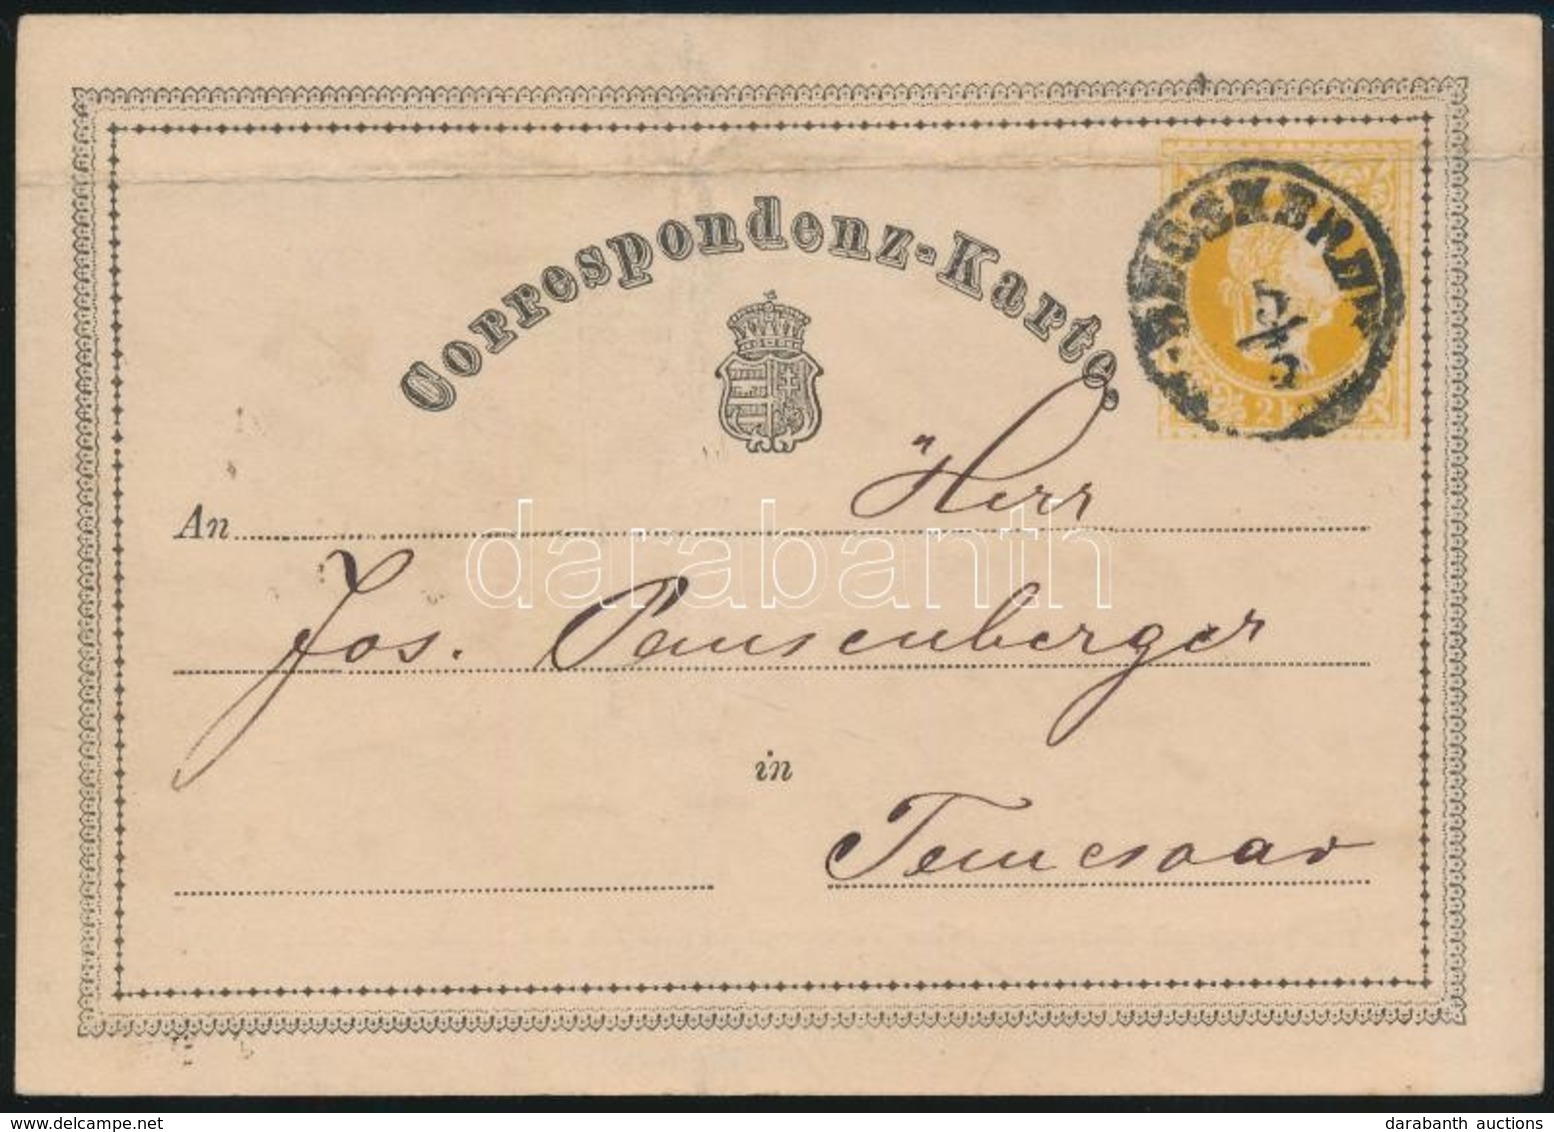 Correspondenz-Karte.
5/3
2 K
An Herr
Jos. Pausenberger
in
Temesvar
darabanth
www.delcampe.net
darabanth auctions